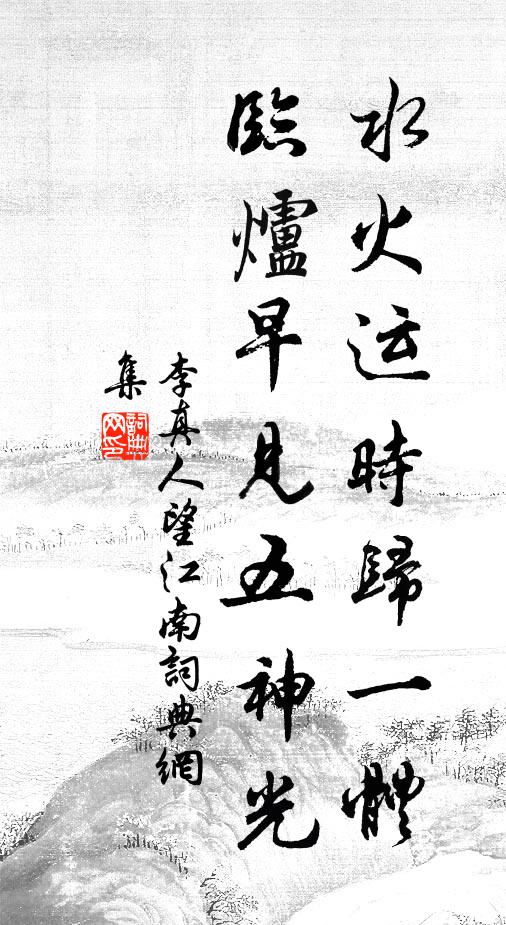 水火运時歸一體
臨爐早見五神光
李真人望江南詞典網
集
詞典網印